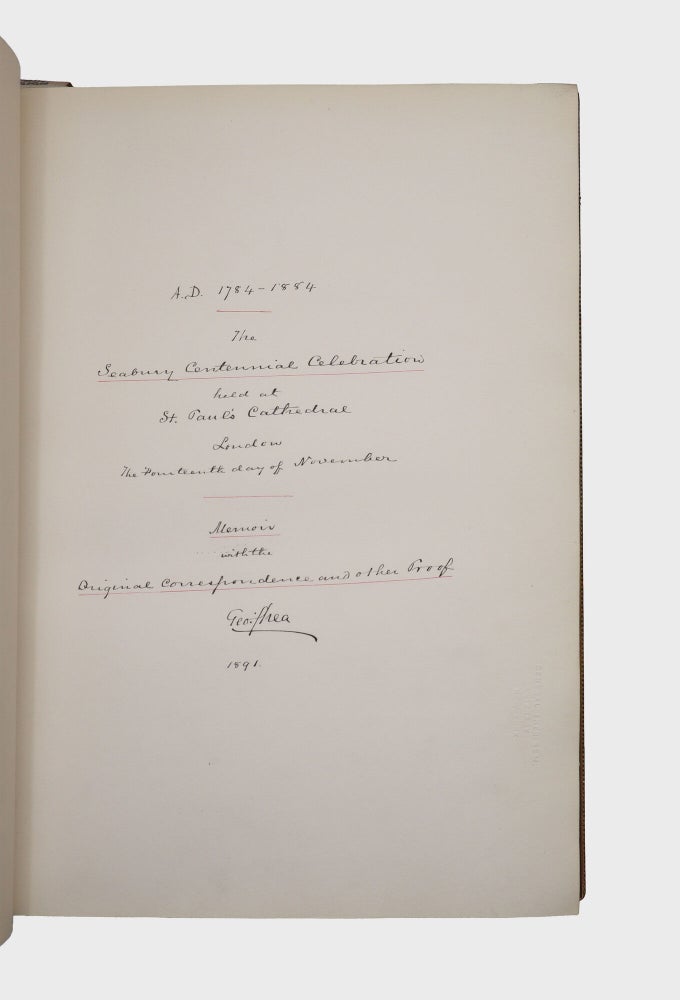 A.D. 1784–1884
The
Seabury Centennial Celebration
held at
St. Paul's Cathedral
London
The Fourteenth day of November
Memoir
with the
Original Correspondence and other Proof
Geo: Shea
1891.